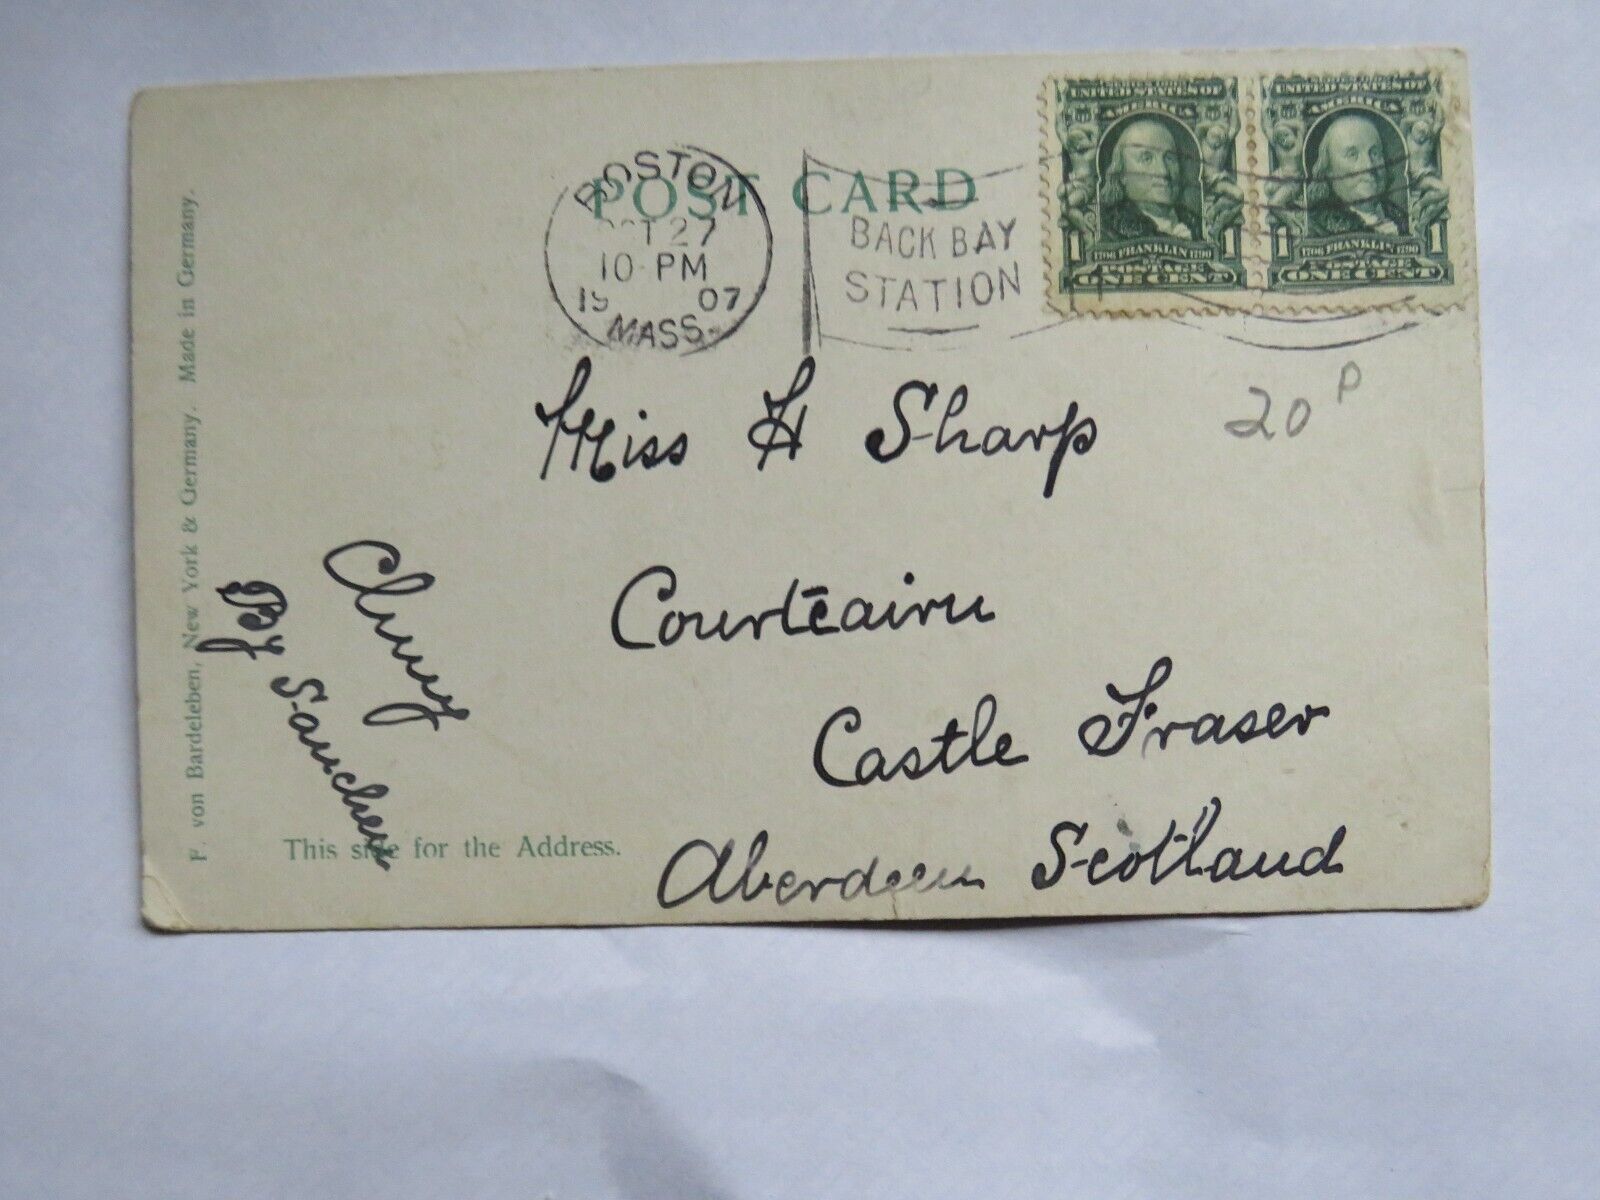 POST CARD
BOSTON
OCT 27
10 PM
19 07
MASS.
BACK BAY
STATION
UNITED STATES OF
AMERICA
1 1706 FRANKLIN 1790 1
POSTAGE
ONE CENT
UNITED STATES OF
AMERICA
1 1706 FRANKLIN 1790 1
POSTAGE
ONE CENT
20 P
Miss H Sharp
Castle Fraser
Aberdeen Scotland
By
This side for the Address.
F. von Bardeleben, New York & Germany. Made in Germany.